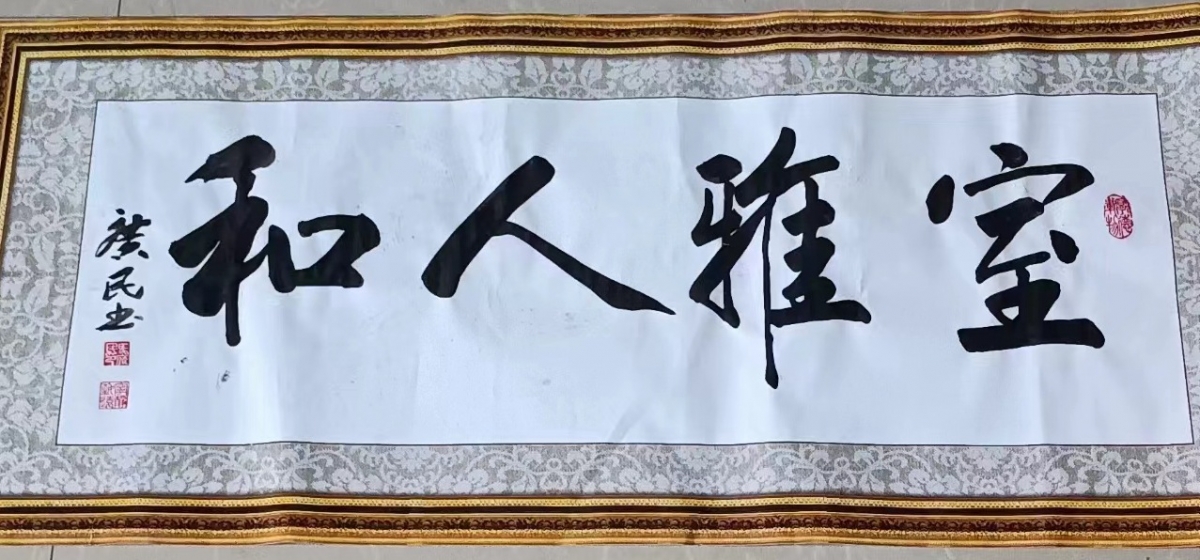 室雅人和
廣民书